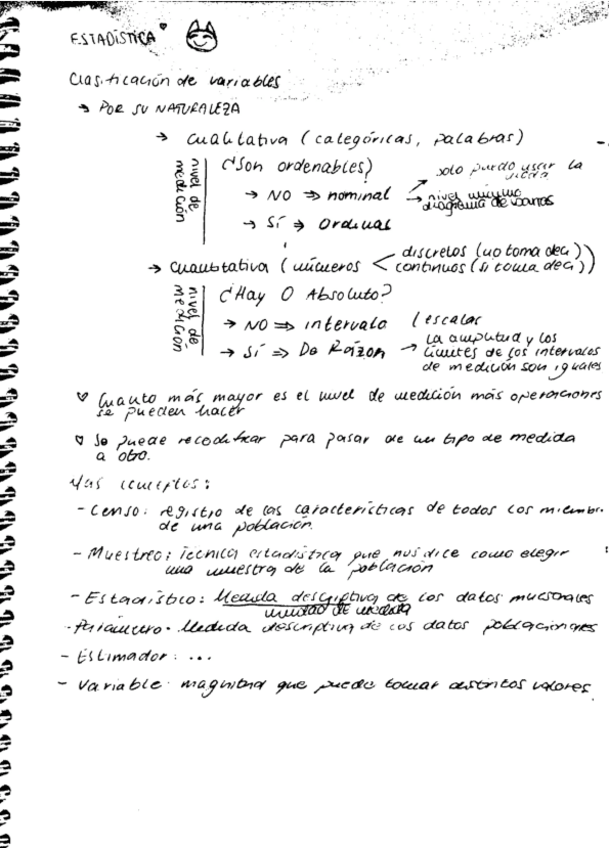 ESTADÍSTICA
Clasificación de variables
→ POR SU NATURALEZA
→ Cualitativa (categóricas, palabras)
nivel de medición
¿Son ordenables?
→ NO ⇒ nominal
→ solo puedo usar la
→ nivel mínimo
diagrama de
→ Sí ⇒ Ordinas
→ Cuantitativa (números
discretos (no toma deci)
continuos (si toma deci))
nivel de medición
¿Hay O Absoluto?
→ NO ⇒ intervalo (escalas
→ Sí ⇒ De Razón → La amplitud y los
límites de los intervalos
de medición son iguales
♡ Cuanto más mayor es el nivel de medición más operaciones
se pueden hacer
♡ Se puede recodificar para pasar de un tipo de medida
a otro.
Mas conceptos:
- Censo: registro de las características de todos los miembr.
de una población.
- Muestreo: Tecnica estadística que nos dice como elegir
una muestra de la población
- Estadístico: Medida descriptiva de los datos muestrales
unidad de medida
- Parámetro. Medida descriptiva de los datos poblacionales
- Estimador: ...
- Variable: magnitud que puede tomar distintos valores.